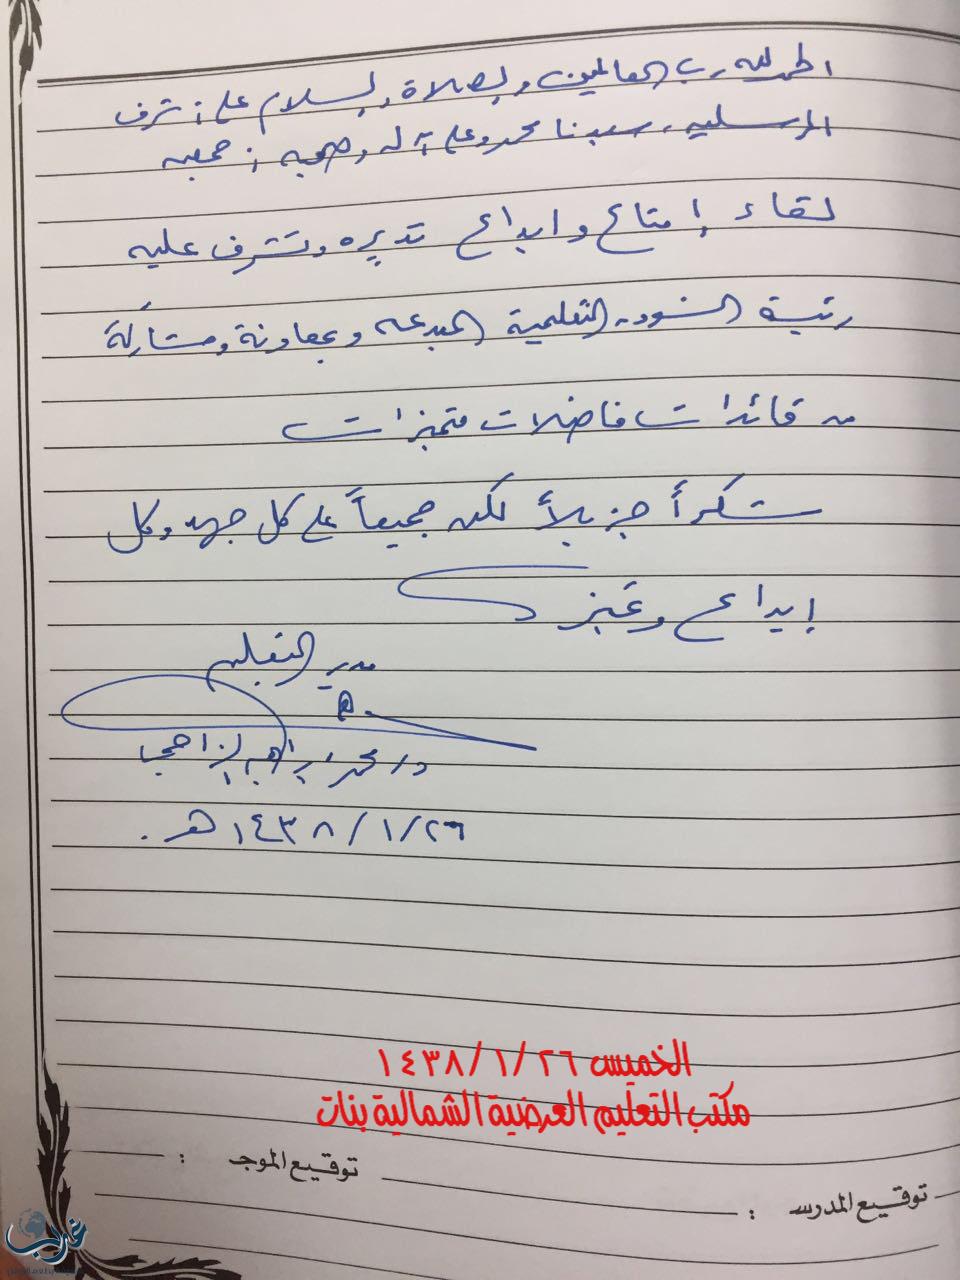 الحمد لله رب العالمين والصلاة والسلام على أشرف
المرسلين، سيدنا محمد وعلى آله وصحبه أجمعين
لقاء إمتاع وابداع تديره وتشرف عليه
رئيسة الشؤون التعليمية المبدعه وبمعاونة ومشاركة
من قائدات فاضلات متميزات
شكراً جزيلاً لكن جميعاً على كل جهد وكل
إبداع وتميز
مدير التعليم
د. محمد إبراهيم الزاحمي
١٤٣٨/١/٢٦هـ.
الخميس ١٤٣٨/١/٢٦
مكتب التعليم العرضية الشمالية بنات
توقيع الموجه :
توقيع المدرس :
غرب